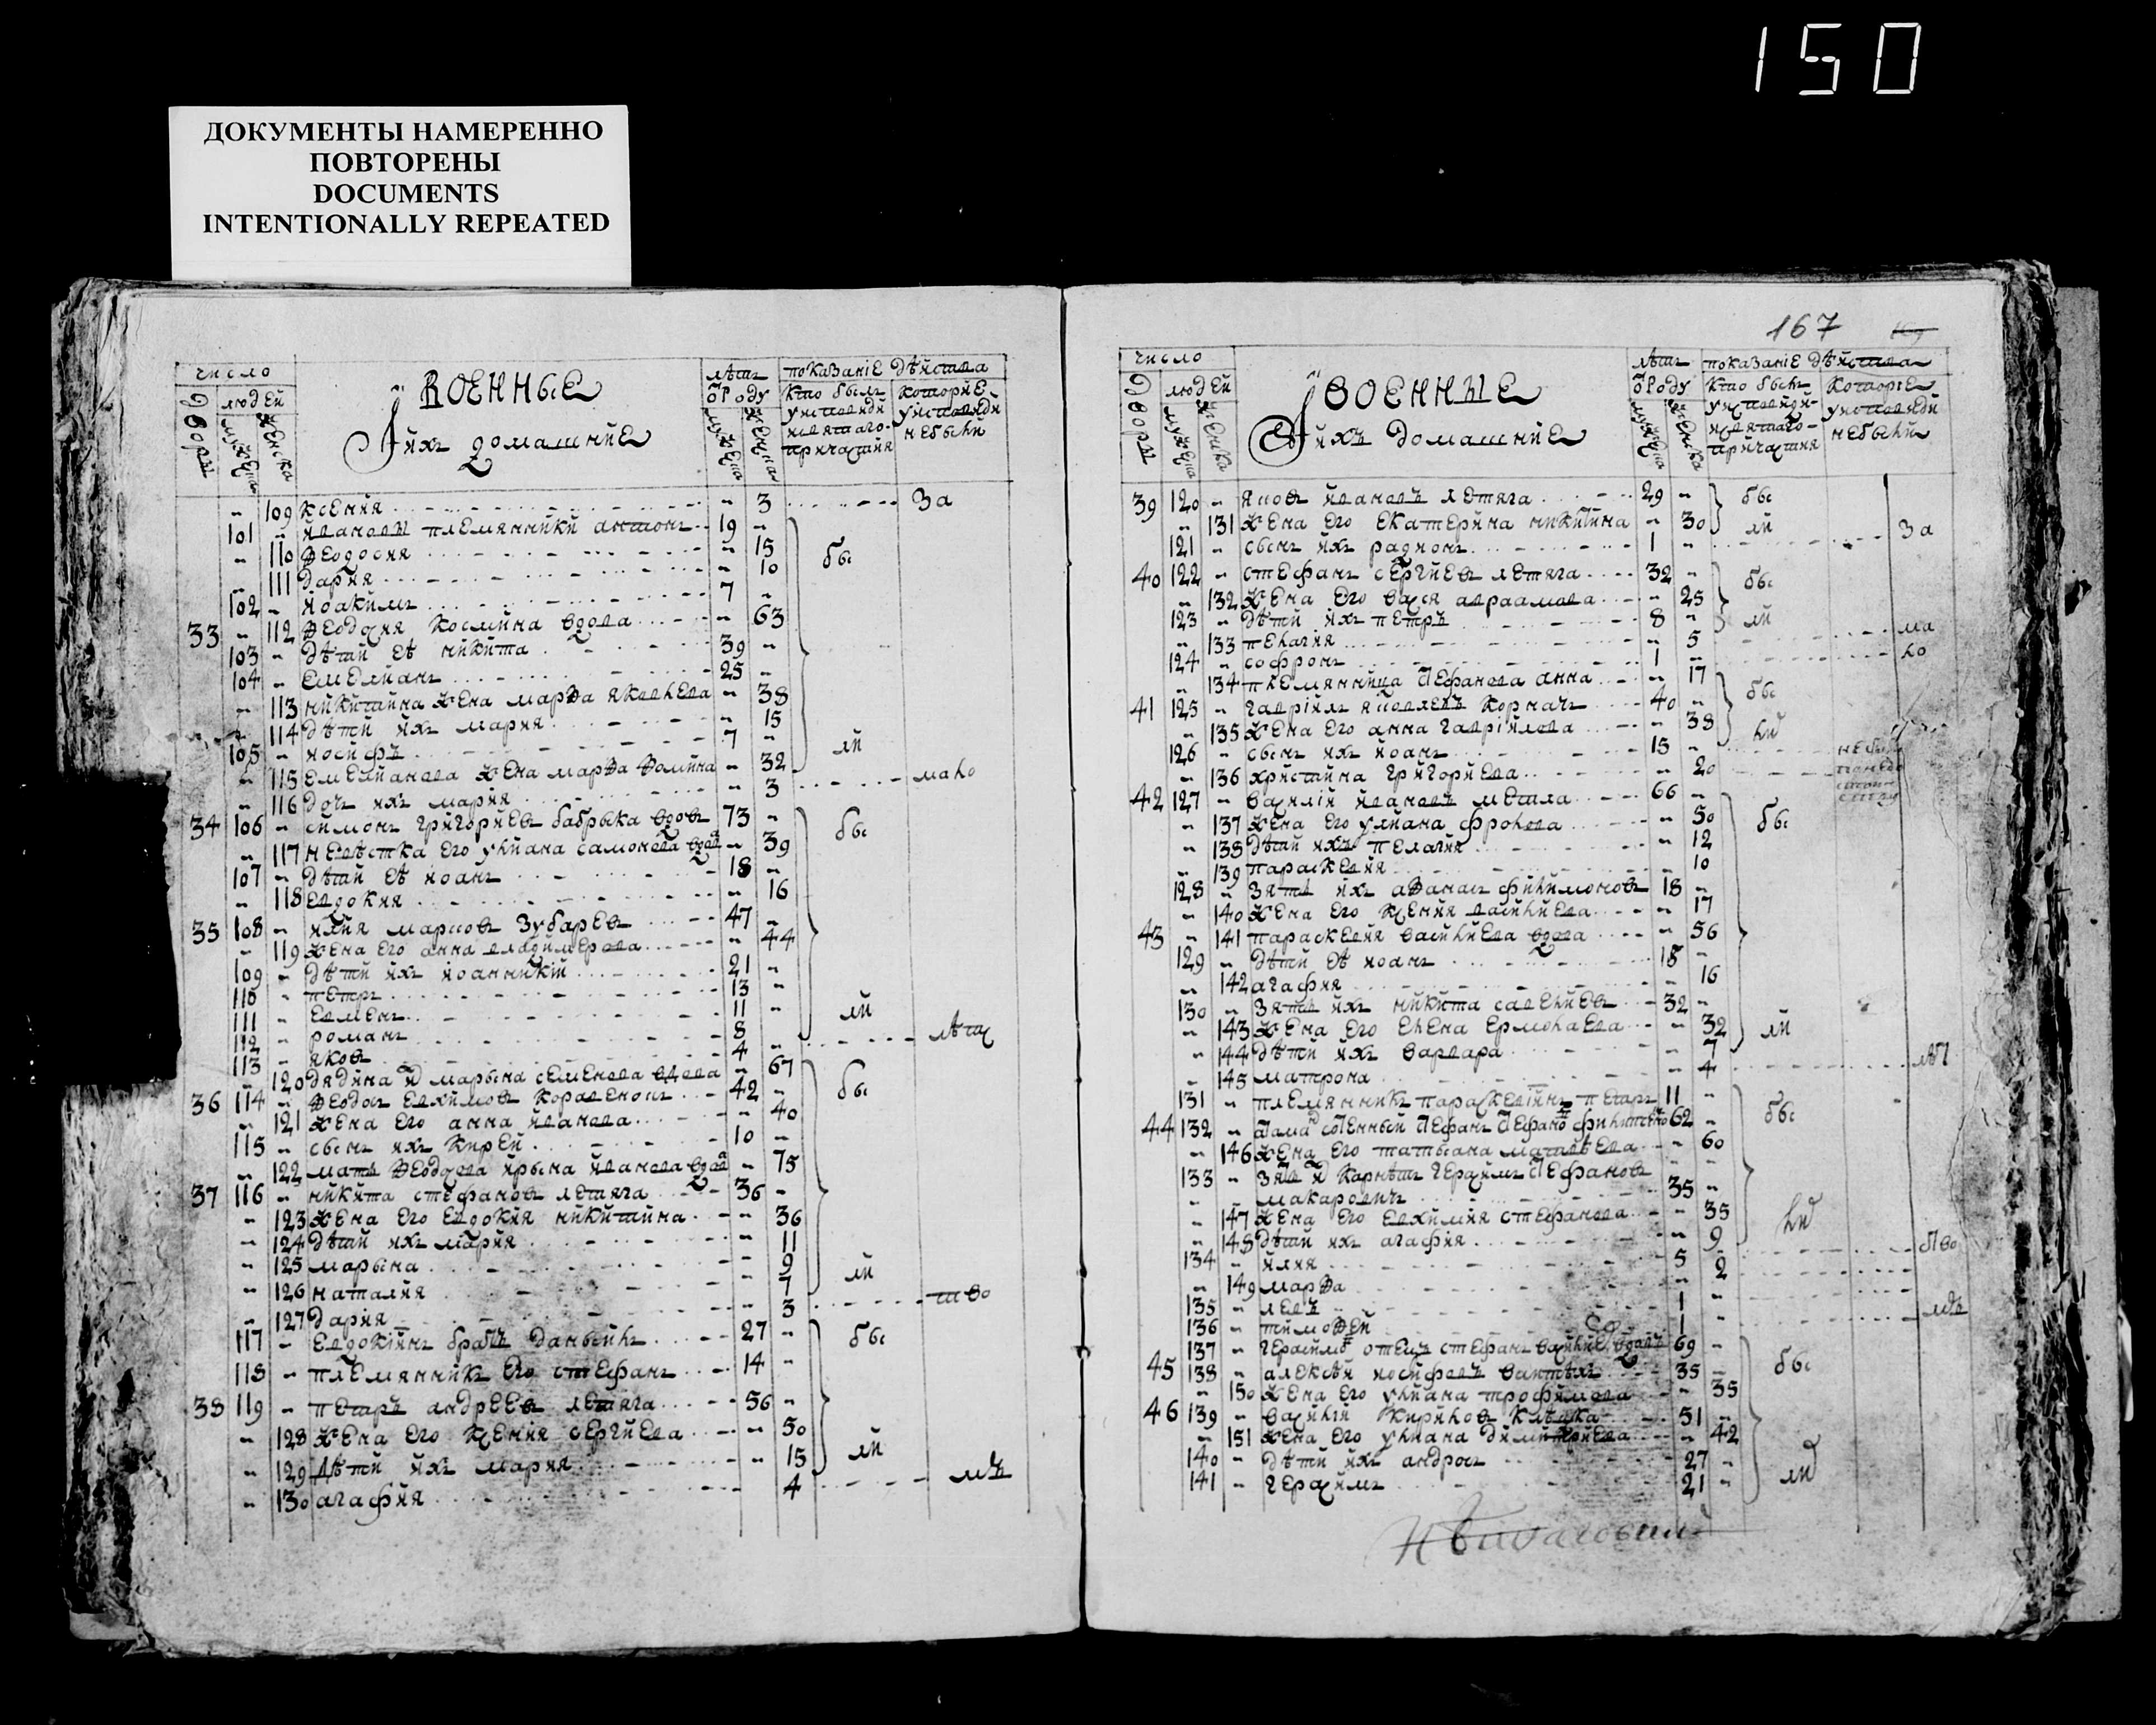 150
ДОКУМЕНТЫ НАМЕРЕННО
ПОВТОРЕНЫ
DOCUMENTS
INTENTIONALLY REPEATED
число
людей
Военные
И ихъ домашние
лѣтъ
ѿ роду
показаніе дѣйства
кто былъ
у исповѣди
и святаго
причастия
которие
у исповѣди
небыли
109 ксения 3 за
101 ивановы племянники антонъ 19
110 Ѳеодосия 15 бы
111 дария 10
102 иоакимъ 7
33 112 Ѳеодосия космина вдова 63
103 дѣти еѣ никита 39
104 емелианъ 25
113 никитина жена марѲа яковлева 38
114 дѣти ихъ мария 15
105 иосифъ 7 ли
115 емелианова жена марѲа Ѳомина 32
116 дочь ихъ мария 3 мало
34 106 симонъ григориевъ бабрыка вдовъ 73 бы
117 невѣстка его улиана самонова вдова 39
107 дѣти еѣ иоанъ 18
118 евдокия 16
35 108 илия марковъ зубаревъ 47
119 жена его анна владимерова 44
109 дѣти ихъ иоанникий 21
110 петръ 13
111 евменъ 11 ли
112 романъ 8
113 яковъ 4 лѣтс
120 дядина и марына семенова вдова 67
36 114 Ѳеодосъ евхимовъ 42 бы
121 жена его анна иванова 40
115 сынъ ихъ кирей 10
122 мать Ѳеодосева ирына иванова вдова 75
37 116 никита стефановъ летяга 36
123 жена его евдокия никитина 36
124 дѣти ихъ мария 11
125 марына 9
126 наталия 7 ли
127 дария 3 тво
117 евдокиинъ братъ даныилъ 27 бы
118 племянникъ его стефанъ 14
38 119 петръ андреевъ летяга 56
128 жена его ксения сергиева 50
129 дѣти ихъ мария 15 ли
130 агафия 4 мъ
167
число
людей
Военные
И ихъ домашние
лѣтъ
ѿ роду
показаніе дѣйства
кто былъ
у исповѣди
и святаго
причастия
которіе
у исповѣди
небыли
39 120 яковъ ивановъ летяга 29 бы
131 жена его екатерина никитина 30 ли
121 сынъ ихъ радионъ 1 за
40 122 стефанъ сергиевъ летяга 32 бы
132 жена его васся авраамова 25
123 дѣти ихъ петръ 8 ли
133 пелагия 5 ма
124 софронъ 1 ло
134 племянница стефанова анна 17
41 125 гавріилъ яковлевъ корначъ 40 бы
135 жена его анна гавріилова 38 ли
126 сынъ ихъ иоанъ 15
136 христина григориева 20
42 127 василий ивановъ метла 66
137 жена его улиана фролова 50 бы
138 дѣти ихъ пелагия 12
139 параскевия 10
128 зять ихъ аѲанасъ филимоновъ 18
140 жена его ксения василиева 17
43 141 параскевия василиева вдова 56
129 дѣти еѣ иоанъ 18
142 агафия 16
130 зять ихъ никита савелиевъ 32
143 жена его елена ермолаева 32 ли
144 дѣти ихъ варвара 7
145 матрона 4
131 племянникъ параскевиинъ петръ 11
44 132 атаманъ сотенный стефанъ стефановъ 62 бы
146 жена его татьяна матвѣева 60
133 герасимъ стефановъ
макаровичъ 35
147 жена его евхимия стефанова 35
148 дѣти ихъ агафия 9 ли
134 илия 5 ство
149 марѲа 2
135 левъ 1
136 тимоѲей 1 мъ
137 герасимовъ отецъ стефанъ василиевъ вдовъ 69
45 138 алексѣй иосифовъ 35 бы
150 жена его улиана трофимова 35
46 139 василий кириловъ 51
151 жена его улиана димитриева 42
140 дѣти ихъ андросъ 27
141 герасимъ 21 ли